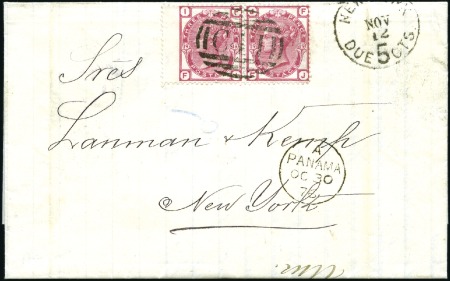 I F
F J
NEW
NOV
12
DUE 5 CTS.
Sres
Lanman & Kemp
A
PANAMA
OC 30
New York